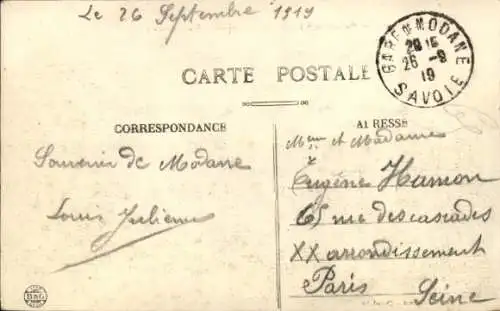 Le 26 Septembre 1919
GARE DE MODANE
26 -9
19
SAVOIE
CARTE POSTALE
CORRESPONDANCE
ADRESSE
Souvenir de Modane
Louis Julienne
et Madame
Eugène Hamon
65 rue des cascades
XX arrondissement
Paris
Seine